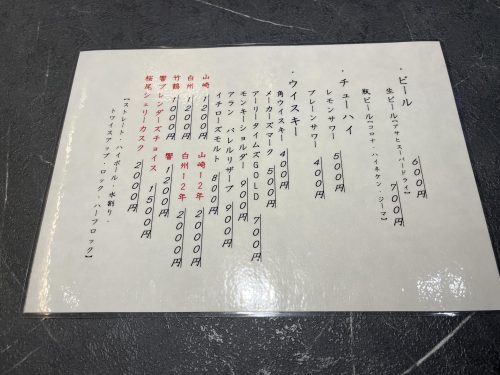 ・ビール
生ビール【アサヒスーパードライ】 600円
瓶ビール【コロナ・ハイネケン・ジーマ】 700円
・チューハイ
レモンサワー 500円
プレーンサワー 400円
・ウイスキー
角ウイスキー 400円
メーカーズマーク 500円
アーリータイムズGOLD 700円
モンキーショルダー 900円
アラン バレルリザーブ 900円
イチローズモルト 800円
山崎 1200円 山崎12年 2000円
白州 1200円 白州12年 2000円
竹鶴 1000円 響 1200円
響ブレンダーズチョイス 1500円
桜尾シェリーカスク 2000円
【ストレート・ハイボール・水割り・
トワイスアップ・ロック・ハーフロック】